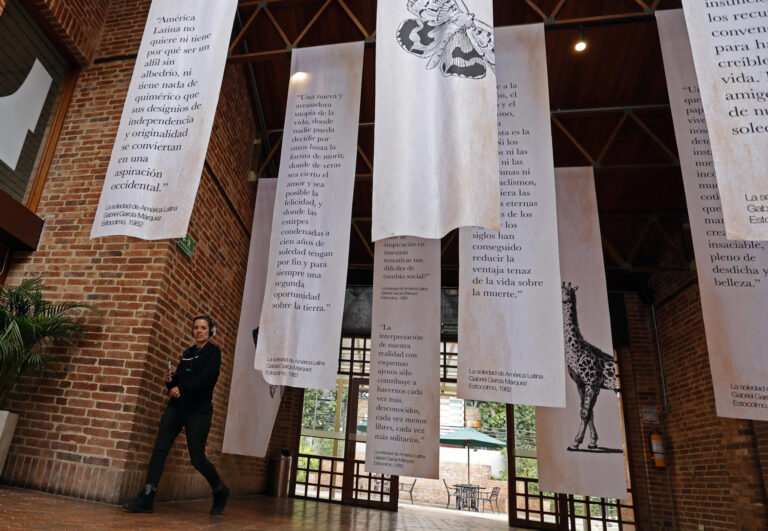 “América
Latina no
quiere ni tiene
por qué ser un
alfil sin
albedrío, ni
tiene nada de
quimérico que
sus designios de
independencia
y originalidad
se conviertan
en una
aspiración
occidental.”
La soledad de América Latina
Gabriel García Márquez
Estocolmo, 1982
“Una nueva y
arrasadora
utopía de la
vida, donde
nadie pueda
decidir por
otros hasta la
forma de morir,
donde de veras
sea cierto el
amor y sea
posible la
felicidad, y
donde las
estirpes
condenadas a
cien años de
soledad tengan
por fin y para
siempre una
segunda
oportunidad
sobre la tierra.”
La soledad de América Latina
Gabriel García Márquez
Estocolmo, 1982
suspicacias en
nuestras
tentativas tan
difíciles de
cambio social?”
La soledad de América Latina
Gabriel García Márquez
Estocolmo, 1982
“La
interpretación
de nuestra
realidad con
esquemas
ajenos sólo
contribuye a
hacernos cada
vez más
desconocidos,
cada vez
menos libres,
cada vez más
solitarios.”
La soledad de América Latina
Gabriel García Márquez
Estocolmo, 1982
a la
el
y el
sta es la
Ni los
ni las
ni las
nas ni
aclismos,
quiera
eternas
de los
s y
siglos han
conseguido
reducir la
ventaja tenaz
de la vida sobre
la muerte.”
La soledad de América Latina
Gabriel García Márquez
Estocolmo, 1982
pleno de
desdicha y
belleza.”
La soledad de América
Gabriel García Márquez
Estocolmo, 1982
los recu
conven
para ha
creíble
vida.
amigo
de nu
soled
La so
Gabri
Estoc